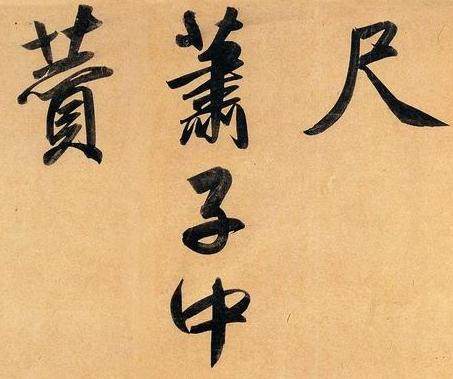 尺
蕭子中